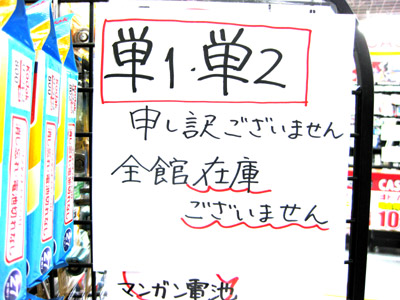 単1・単2
申し訳ございません
全館在庫
ございません
マンガン電池
CAS
10